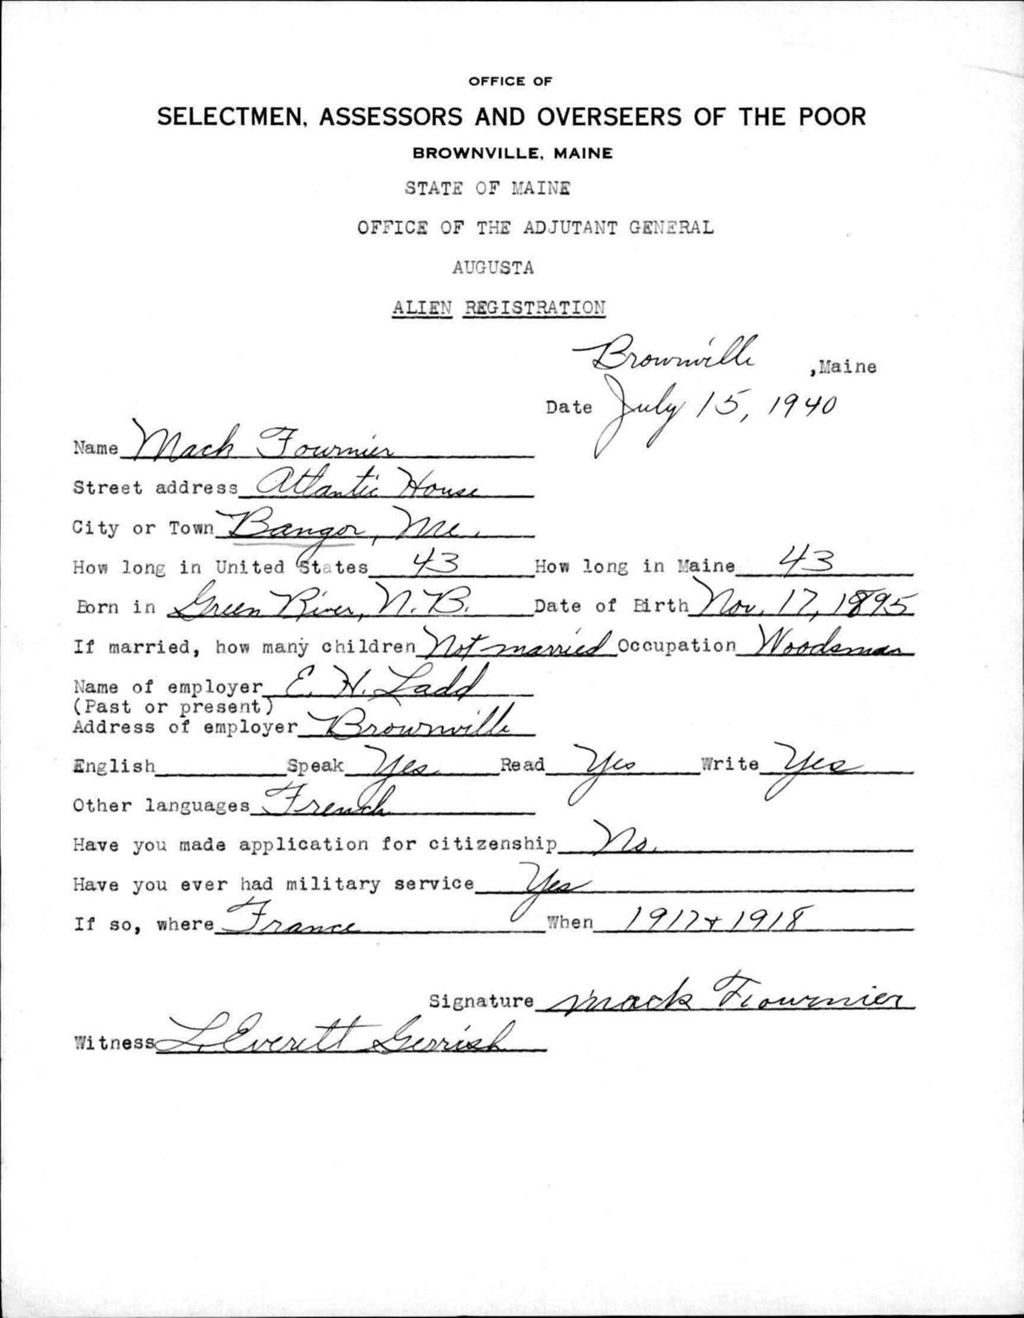 OFFICE OF
SELECTMEN, ASSESSORS AND OVERSEERS OF THE POOR
BROWNVILLE, MAINE
STATE OF MAINE
OFFICE OF THE ADJUTANT GENERAL
AUGUSTA
ALIEN REGISTRATION
Brownville, Maine
Date July 15, 1940
Name Mack Fournier
Street address Atlantic House
City or Town Bangor, Me.
How long in United States 43 How long in Maine 43
Born in Green River, N.B. Date of Birth Nov. 17, 1895
If married, how many children Not married Occupation Woodsman
Name of employer E. H. Ladd
(Past or present)
Address of employer Brownville
English Speak Yes Read Yes Write Yes
Other languages French
Have you made application for citizenship No.
Have you ever had military service Yes
If so, where France When 1917 + 1918
Signature Mack Fournier
Witness L. Everett Gerrish